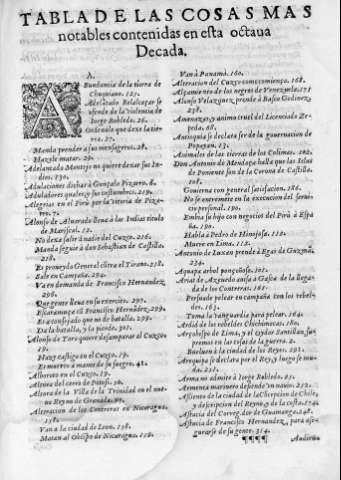 TABLA DE LAS COSAS MAS
notables contenidas en esta octaua
Decada.
A.
Abundancia de la tierra de
Chuquiano. 127.
Adelantado Belalcazar se
ofende de la violencia de
Jorge Robledo. 26.
Ordenale que dexe la tier-
ra. 27.
Manda prender a sus mensageros. 28.
Hazele matar. 29.
Adelantado Montejo no quiere dexar sus In-
dios. 130.
Adulaciones dichas à Gonçalo Pizarro. 6.
Aduladores quales y sus costumbres. 219.
Alegrias en el Pirù por la vitoria de Piza-
rro. 7.
Alonso de Aluarado lleua a las Indias titulo
de Mariscal. 12.
No dexa salir a nadie del Cuzco. 226.
Manda seguir à don Sebastian de Castilla.
218.
Es proueydo General cõtra el Tirano. 238.
Sale en Campaña. 294.
Va en demanda de Francisco Hernandez.
296.
Que gente lleua en su exercito. 297.
Escaramuça cõ Francisco Hernãdez. 299.
Es aconsejado que no de batalla. 300.
Da la batalla, y la pierde. 301.
Alonso de Toro quiere desamparar el Cuzco.
19.
Haze castigo en el Cuzco. 19.
Es muerto a manos de su suegro. 41.
Alboroto en el Cuzco. 19.
Altura del cerro de Potosi. 30.
Altura de la Villa de la Trinidad en el nue-
uo Reyno de Granada. 90.
Alteracion de los Contreras en Nicaragua.
158.
Van a la ciudad de Leon. 158.
Matan al Obispo de Nicaragua. 158.
Van à Panamà. 160.
Alteracion del Cuzco como comienço. 168.
Alçamiento de los negros de Veneçuela. 171
Alonso Velazquez prende à Basco Godinez.
238.
Amenazas, y animo cruel del Licenciado Ze-
peda. 68.
Antioquia se declara ser de la gouernacion de
Popayan. 13.
Animales de las tierras de los Colimas. 102.
Don Antonio de Mendoça halla que las Islas
de Poniente son de la Corona de Castilla.
108.
Gouierna con general satisfacion. 186.
No se entremete en la execucion del serui-
cio personal. 190.
Embia su hijo con negocios del Pirù à Espa
ña. 190.
Habla à Pedro de Hinojosa. 112.
Muere en Lima. 112.
Antonio de Luxan prende à Egas de Guzmã.
234.
Aquapa arbol ponçoñoso. 101.
Arias de Azeuedo auisa à Gasca de la llega-
da de los Contreras. 161.
Persuade pelear en campaña con los rebel-
des. 163.
Toma la vanguardia para pelear. 164.
Ardid de los rebeldes Chichimecas. 180.
Arçobispo de Lima, y el oydor Santillan su-
premos en las cosas de la guerra. 2
Buelueu à la ciudad de los Reyes. 292.
Arequipa se declara por el Rey, y luego se mu-
da. 21.
Arma no admite à Jorge Robledo. 25.
Armenta marinero defiende vn nauio. 212.
Assiento de la ciudad de la Côcepcion de Chile,
y descripcion del Reyno de la costa. 314.
Astucia del Corregidor de Guamanga. 248.
Astucia de Francisco Hernandez, para asse-
gurarse de su gente. 314.
¶¶¶¶
Audiencia